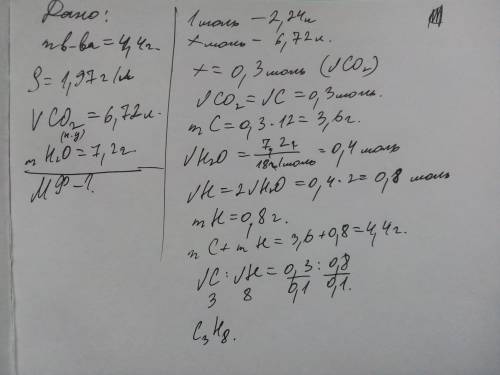 Дано:
m в-ва = 4,4г.
ρ = 1,97г/л
V CO₂ = 6,72л.
(н.у)
m H₂O = 7,2г.
МФ - ?
1 моль — 2,24л
x моль — 6,72л.
x = 0,3 моль (νCO₂)
νCO₂ = νC = 0,3 моль.
mC = 0,3·12 = 3,6г.
νH₂O = 7,2г / 18г/моль = 0,4 моль
νH = 2νH₂O = 0,4·2 = 0,8 моль
mH = 0,8г.
mC + mH = 3,6 + 0,8 = 4,4г.
νC : νH = 0,3/0,1 : 0,8/0,1.
3 8
C₃H₈.